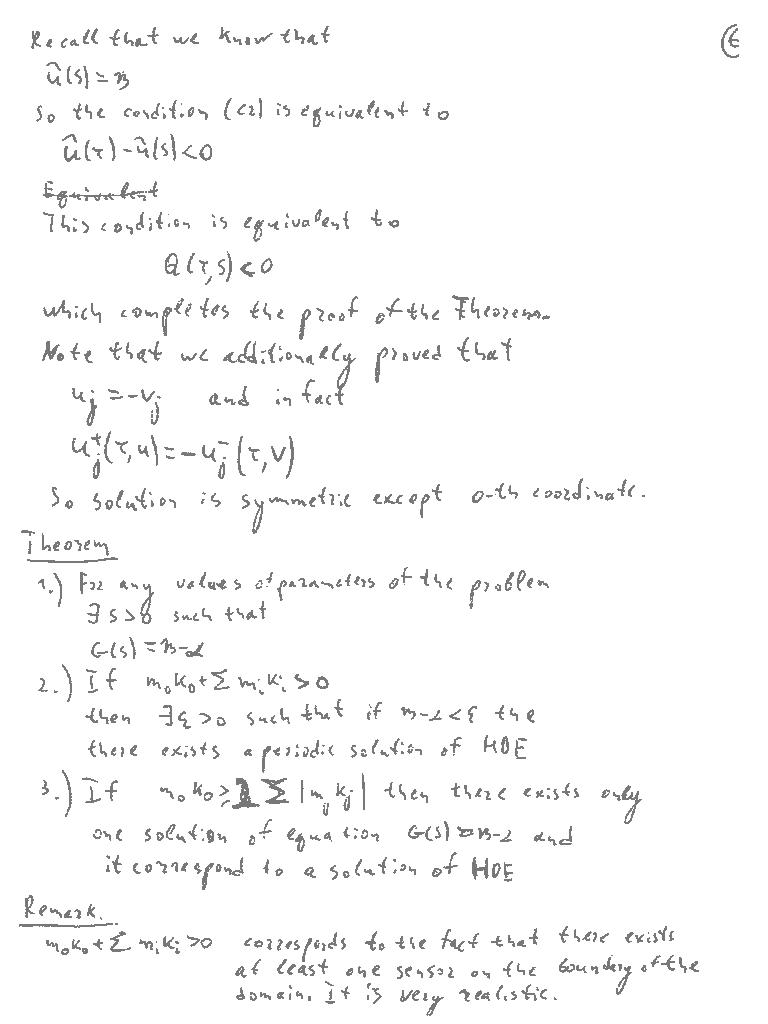 Recall that we know that
(6)
û(s) = β
So the condition (C2) is equivalent to
û(τ) - û(s) < 0
Equivalent
This condition is equivalent to
Q(τ,s) < 0
which completes the proof of the Theorem.
Note that we additionally proved that
u_j = -v_j and in fact
u_j^+(τ,u) = -u_j^-(τ,v)
So solution is symmetric except 0-th coordinate.
Theorem
1.) For any values of parameters of the problem
∃ s>0 such that
G(s) = β-α
2.) If m₀k₀+Σ mᵢkᵢ > 0
then ∃ξ>0 such that if β-α<ξ the
there exists a periodic solution of HDE
3.) If m₀k₀ ≥ Σ |m_j k_j| then there exists only
one solution of equation G(s) = β-α and
it correspond to a solution of HDE
Remark.
m₀k₀+Σ mᵢkᵢ>0 corresponds to the fact that there exists
at least one sensor on the boundary of the
domain. It is very realistic.